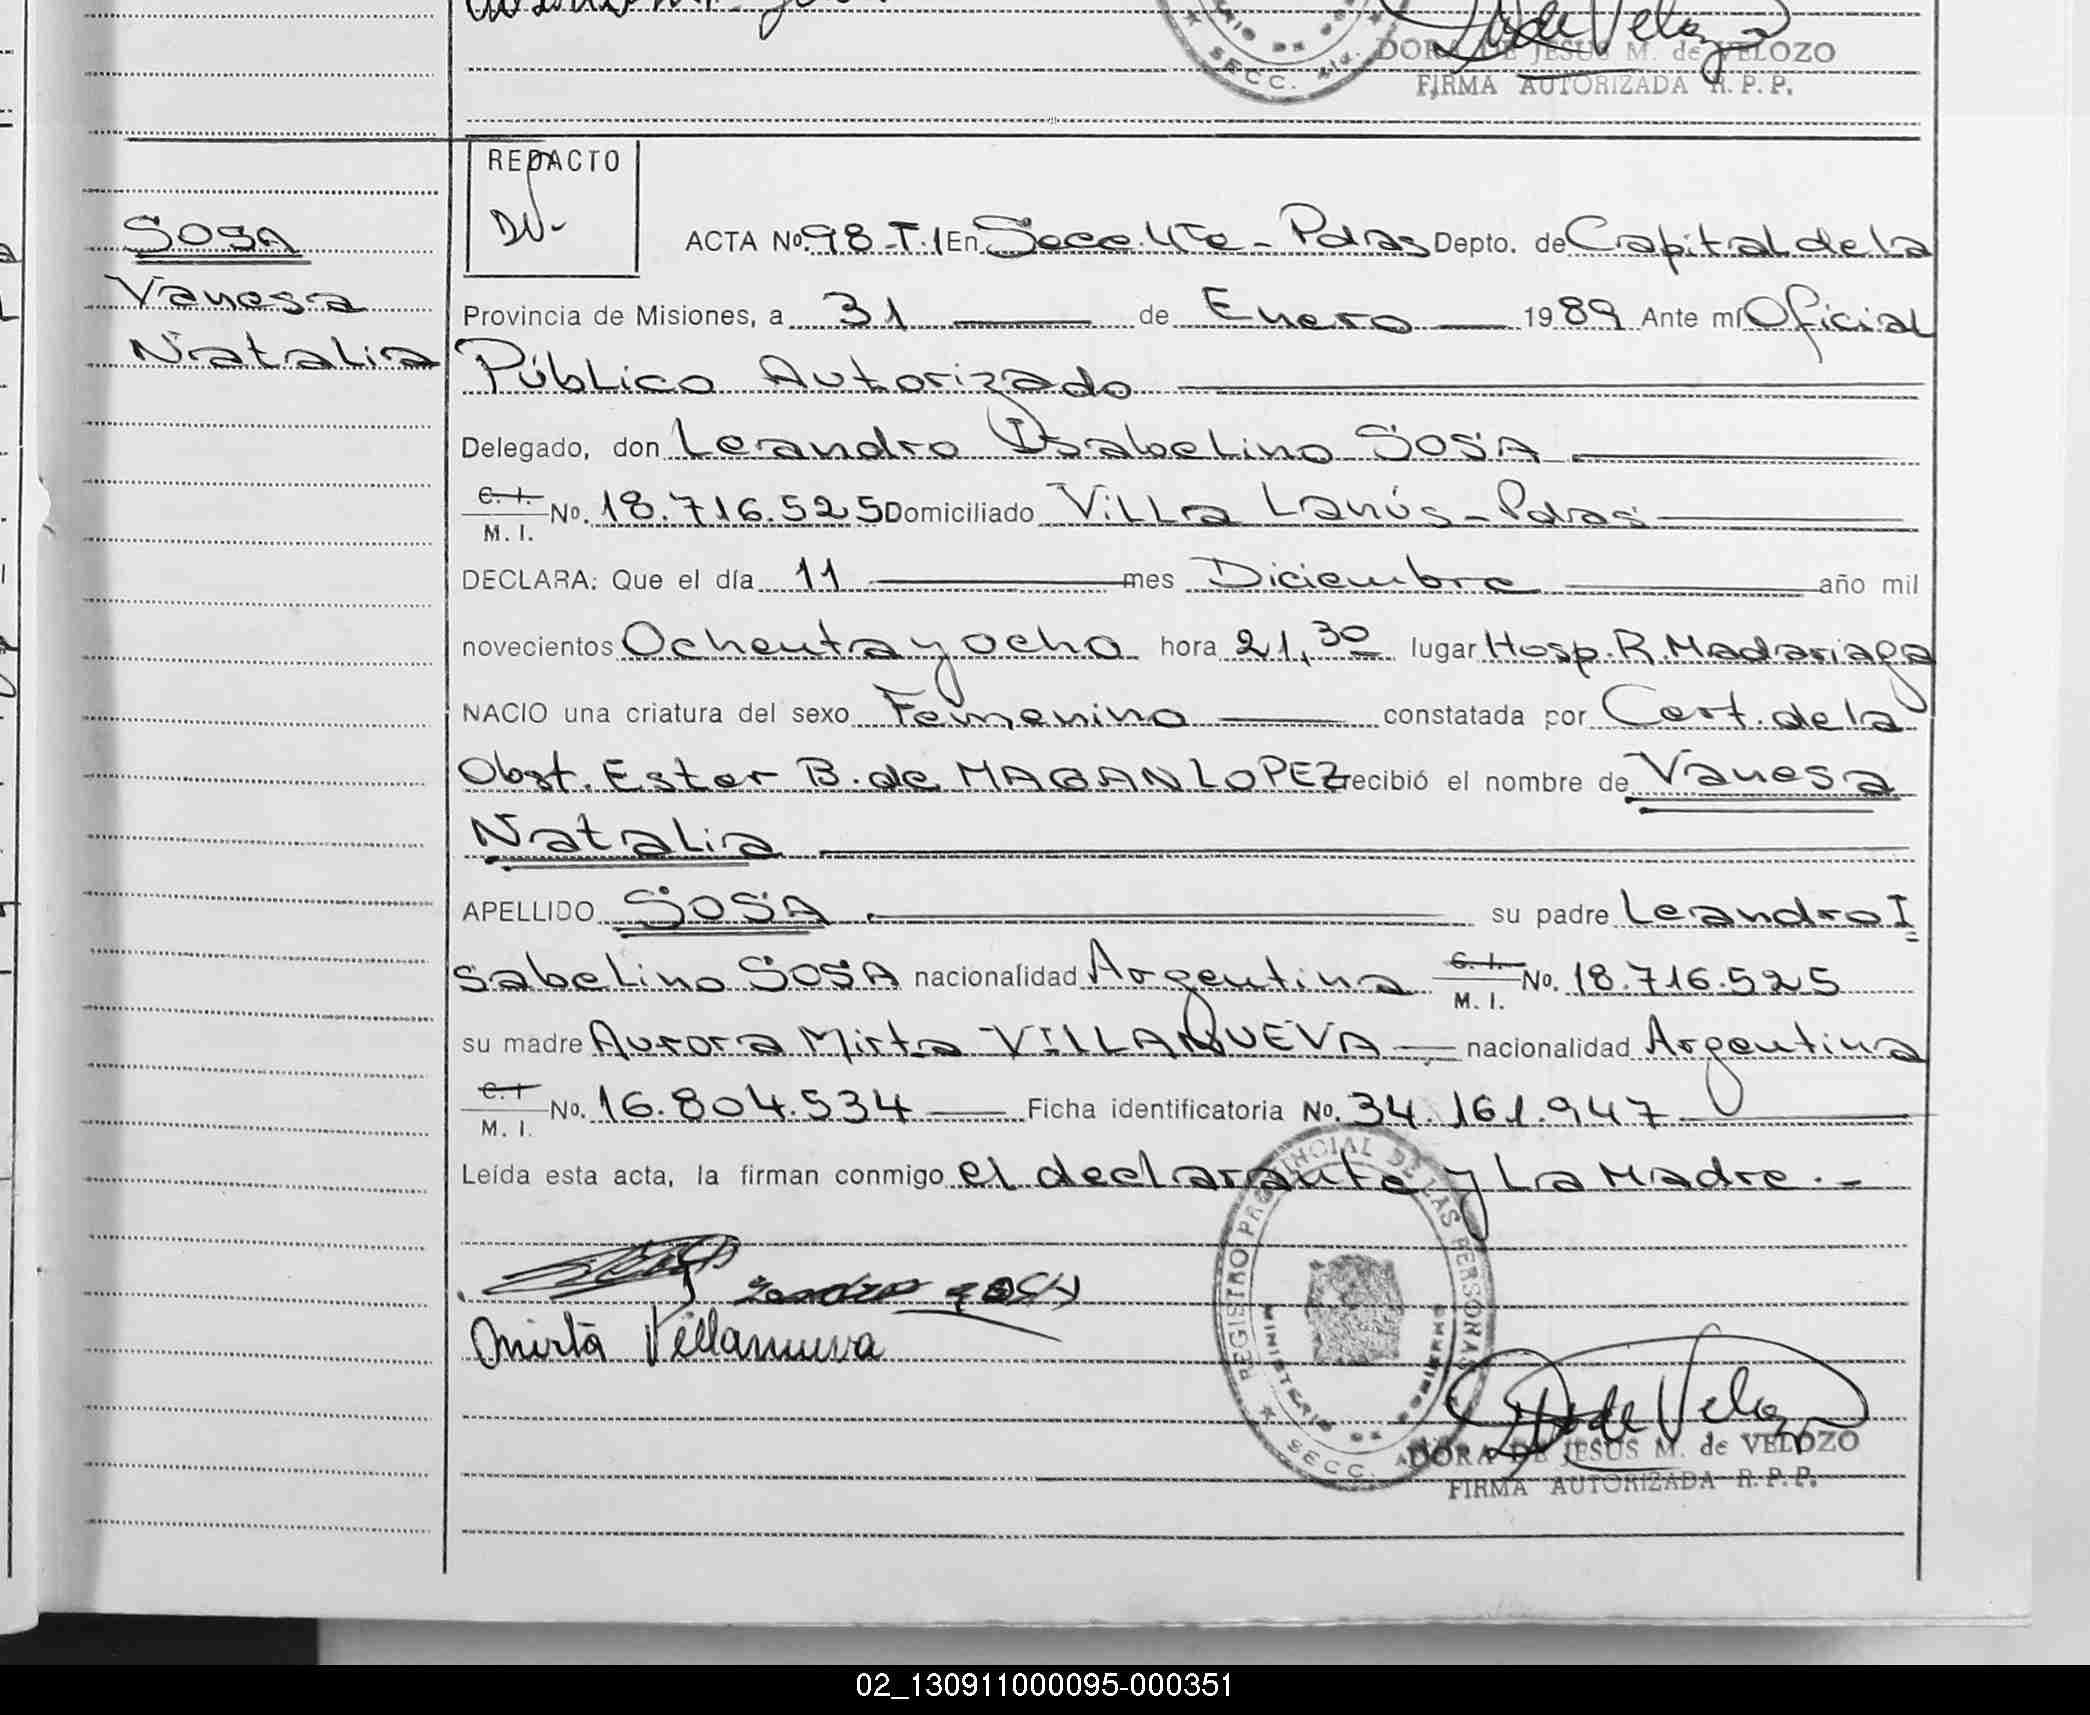 DORA DE JESUS M. de VELOZO
FIRMA AUTORIZADA R. P. P.
SECC.
REDACTO
SOSA
Vanesa
Natalia
ACTA No. 98-T.I En Secc. 4Ta - Pdas Depto. de Capital de la
Provincia de Misiones, a 31 de Enero 1989 Ante mí Oficial
Público Autorizado
Delegado, don Leandro Isabelino SOSA
C. I.
M. I. No. 18.716.525 Domiciliado Villa Lanús - Pdas
DECLARA: Que el día 11 mes Diciembre año mil
novecientos Ochenta y ocho hora 21,30 lugar Hosp. R. Madariaga
NACIO una criatura del sexo Femenino constatada por Cert. de la
Obst. Ester B. de MAGAN LOPEZ recibió el nombre de Vanesa
Natalia
APELLIDO SOSA su padre Leandro I
sabelino SOSA nacionalidad Argentina C. I. M. I. No. 18.716.525
su madre Aurora Mirta VILLANUEVA nacionalidad Argentina
C. I
M. I. No. 16.804.534 Ficha identificatoria No. 34.161.947
Leída esta acta, la firman conmigo el declarante y La Madre.-
REGISTRO PROVINCIAL DE LAS PERSONAS
MINISTERIO DE GOBIERNO
SECC.
Mirta Villanueva
DORA DE JESUS M. de VELOZO
FIRMA AUTORIZADA R. P. P.
02_130911000095-000351